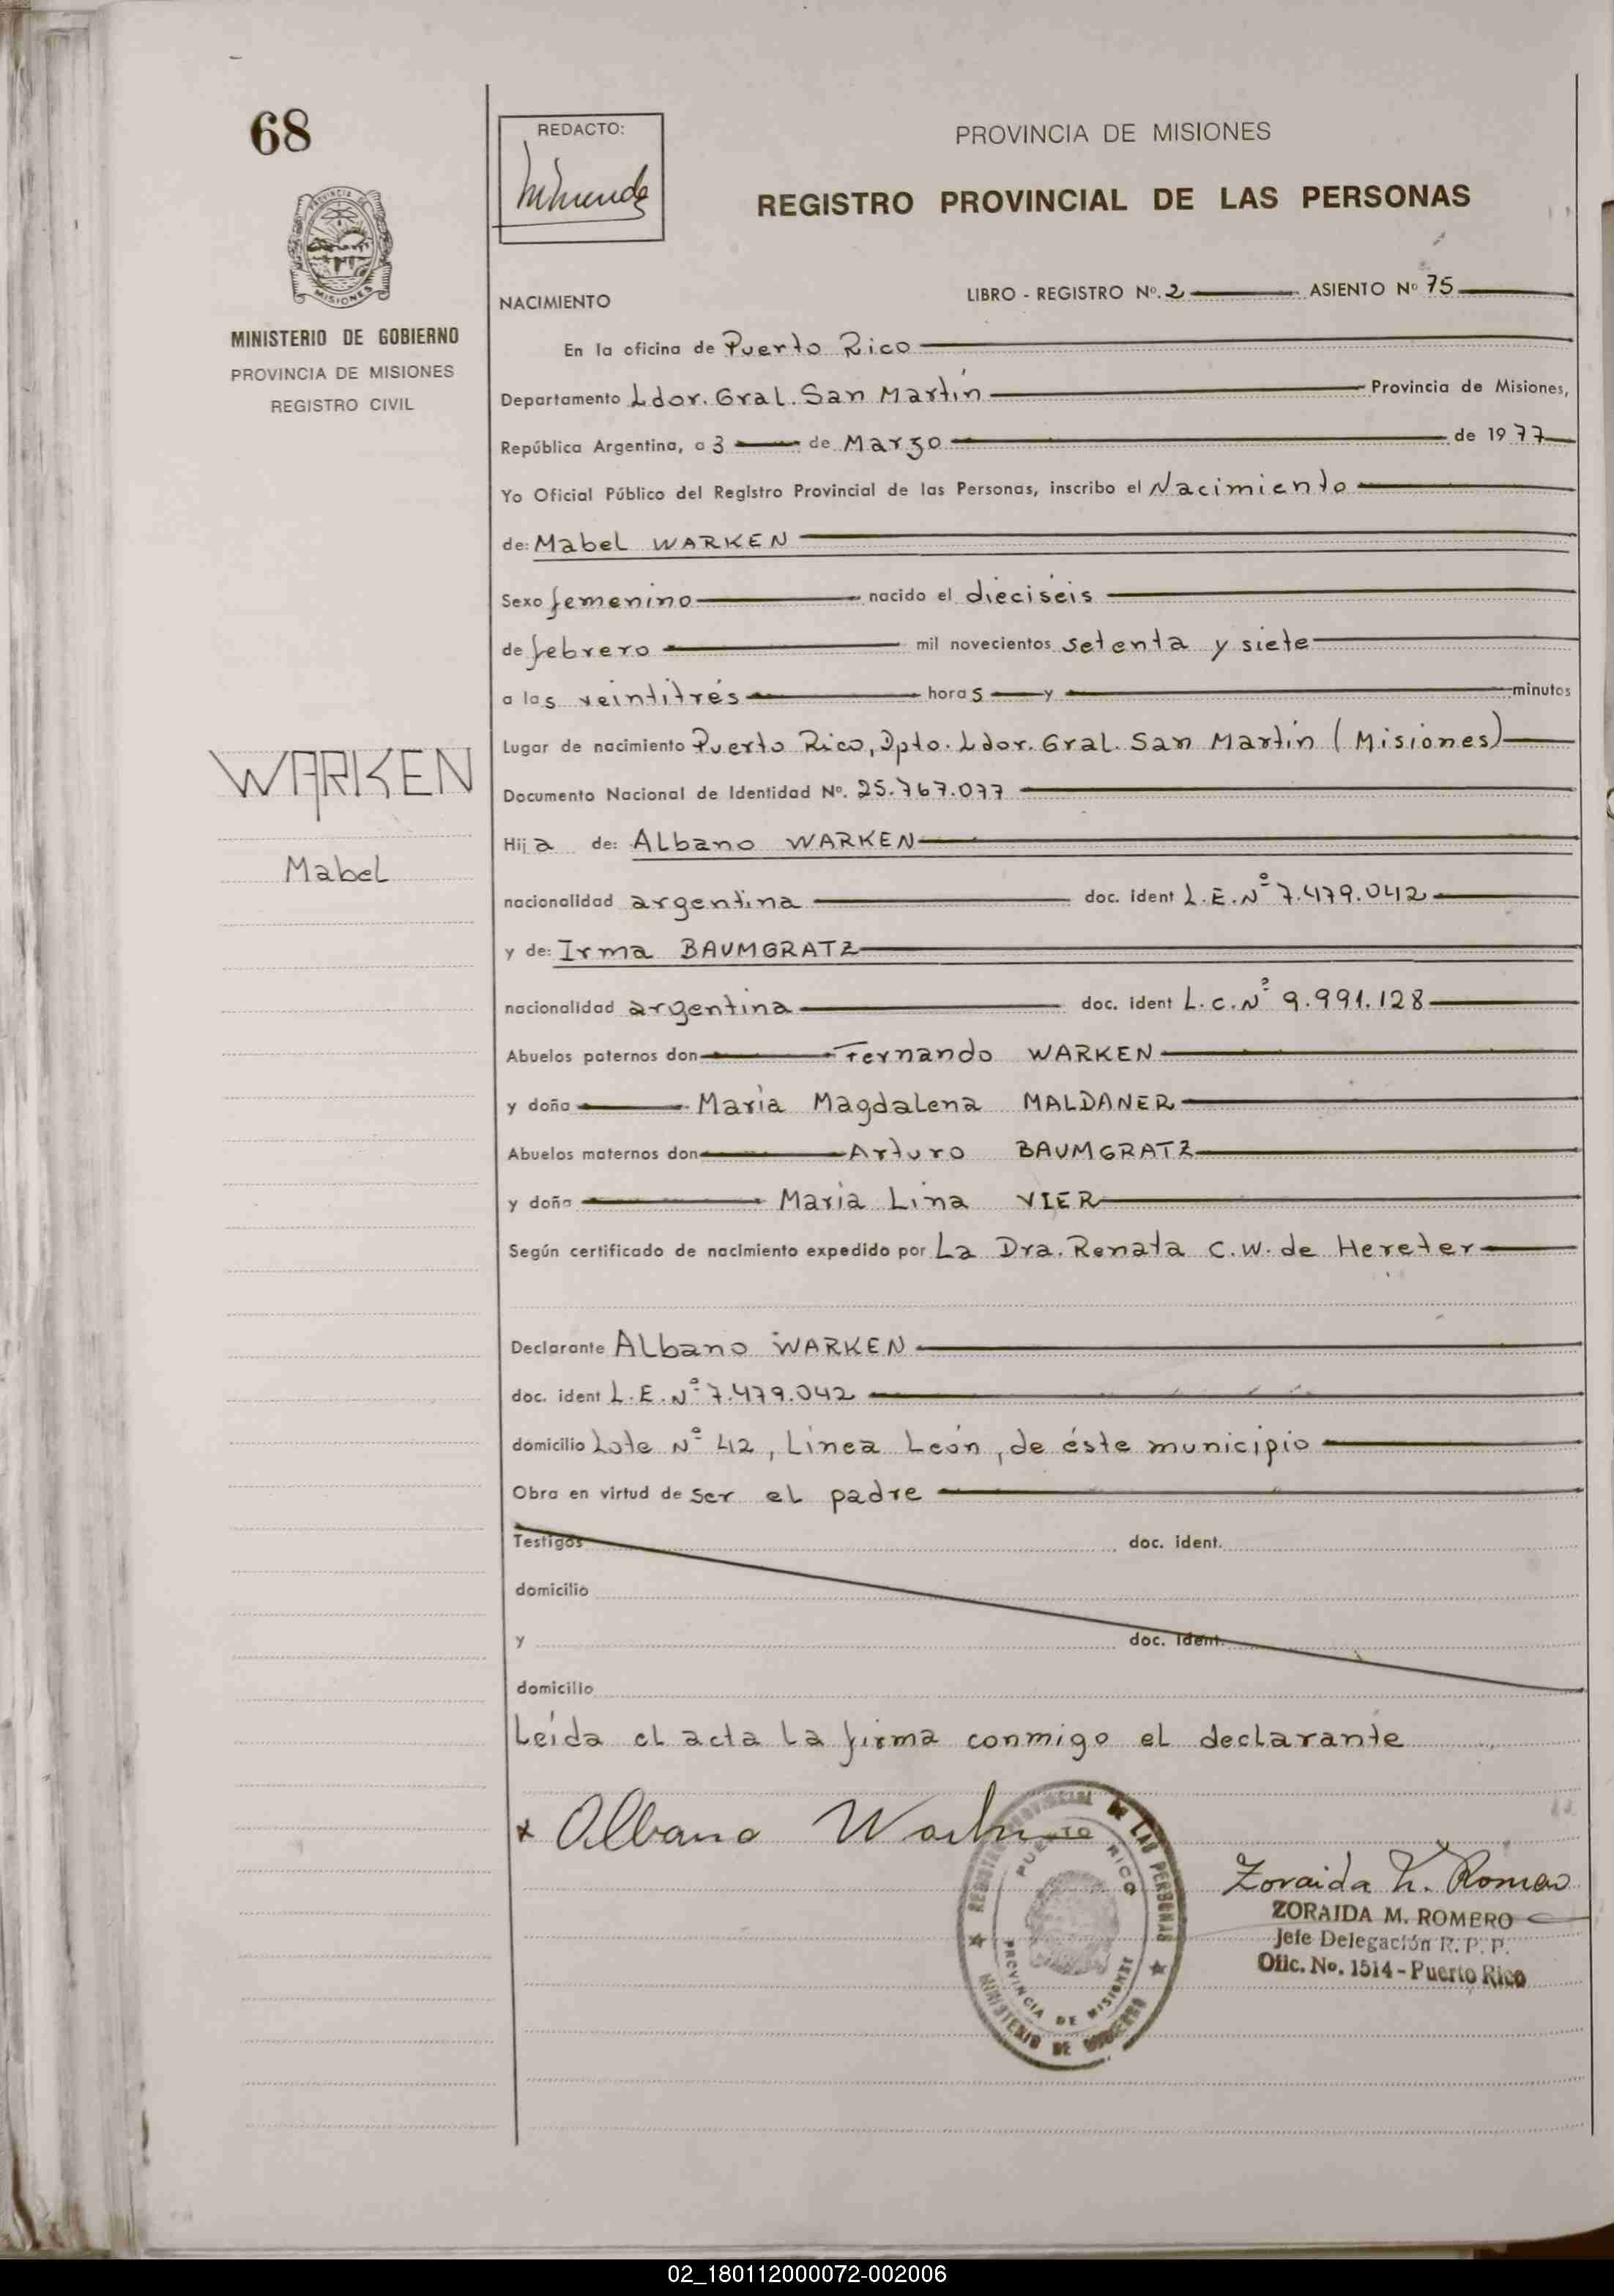 68
REDACTO:
PROVINCIA DE MISIONES
REGISTRO PROVINCIAL DE LAS PERSONAS
PROVINCIA DE
MISIONES
MINISTERIO DE GOBIERNO
PROVINCIA DE MISIONES
REGISTRO CIVIL
NACIMIENTO
LIBRO - REGISTRO Nº. 2 ASIENTO Nº 75
En la oficina de Puerto Rico
Departamento Ldor. Gral. San Martín Provincia de Misiones,
República Argentina, a 3 de Marzo de 1977
Yo Oficial Público del Registro Provincial de las Personas, inscribo el Nacimiento
de: Mabel WARKEN
Sexo femenino nacido el dieciséis
de febrero mil novecientos setenta y siete
a las veintitrés horas y minutos
Lugar de nacimiento Puerto Rico, Dpto. Ldor. Gral. San Martín (Misiones)
WARKEN
Mabel
Documento Nacional de Identidad Nº. 25.767.077
Hija de: Albano WARKEN
nacionalidad argentina doc. ident L.E.Nº 7.479.042
y de: Irma BAUMGRATZ
nacionalidad argentina doc. ident L.C.Nº 9.991.128
Abuelos paternos don Fernando WARKEN
y doña María Magdalena MALDANER
Abuelos maternos don Arturo BAUMGRATZ
y doña María Lina VIER
Según certificado de nacimiento expedido por La Dra. Renata C.W. de Hereter
Declarante Albano WARKEN
doc. ident L.E.Nº 7.479.042
domicilio Lote Nº 42, Línea León, de éste municipio
Obra en virtud de ser el padre
Testigos doc. ident.
domicilio
y doc. ident.
domicilio
Leída el acta la firma conmigo el declarante
x Albano Warken
REGISTRO PROVINCIAL DE LAS PERSONAS
PUERTO RICO
PROVINCIA DE MISIONES
MINISTERIO DE GOBIERNO
Zoraida M. Romero
ZORAIDA M. ROMERO
Jefe Delegación R. P. P.
Ofic. No. 1514 - Puerto Rico
02_180112000072-002006